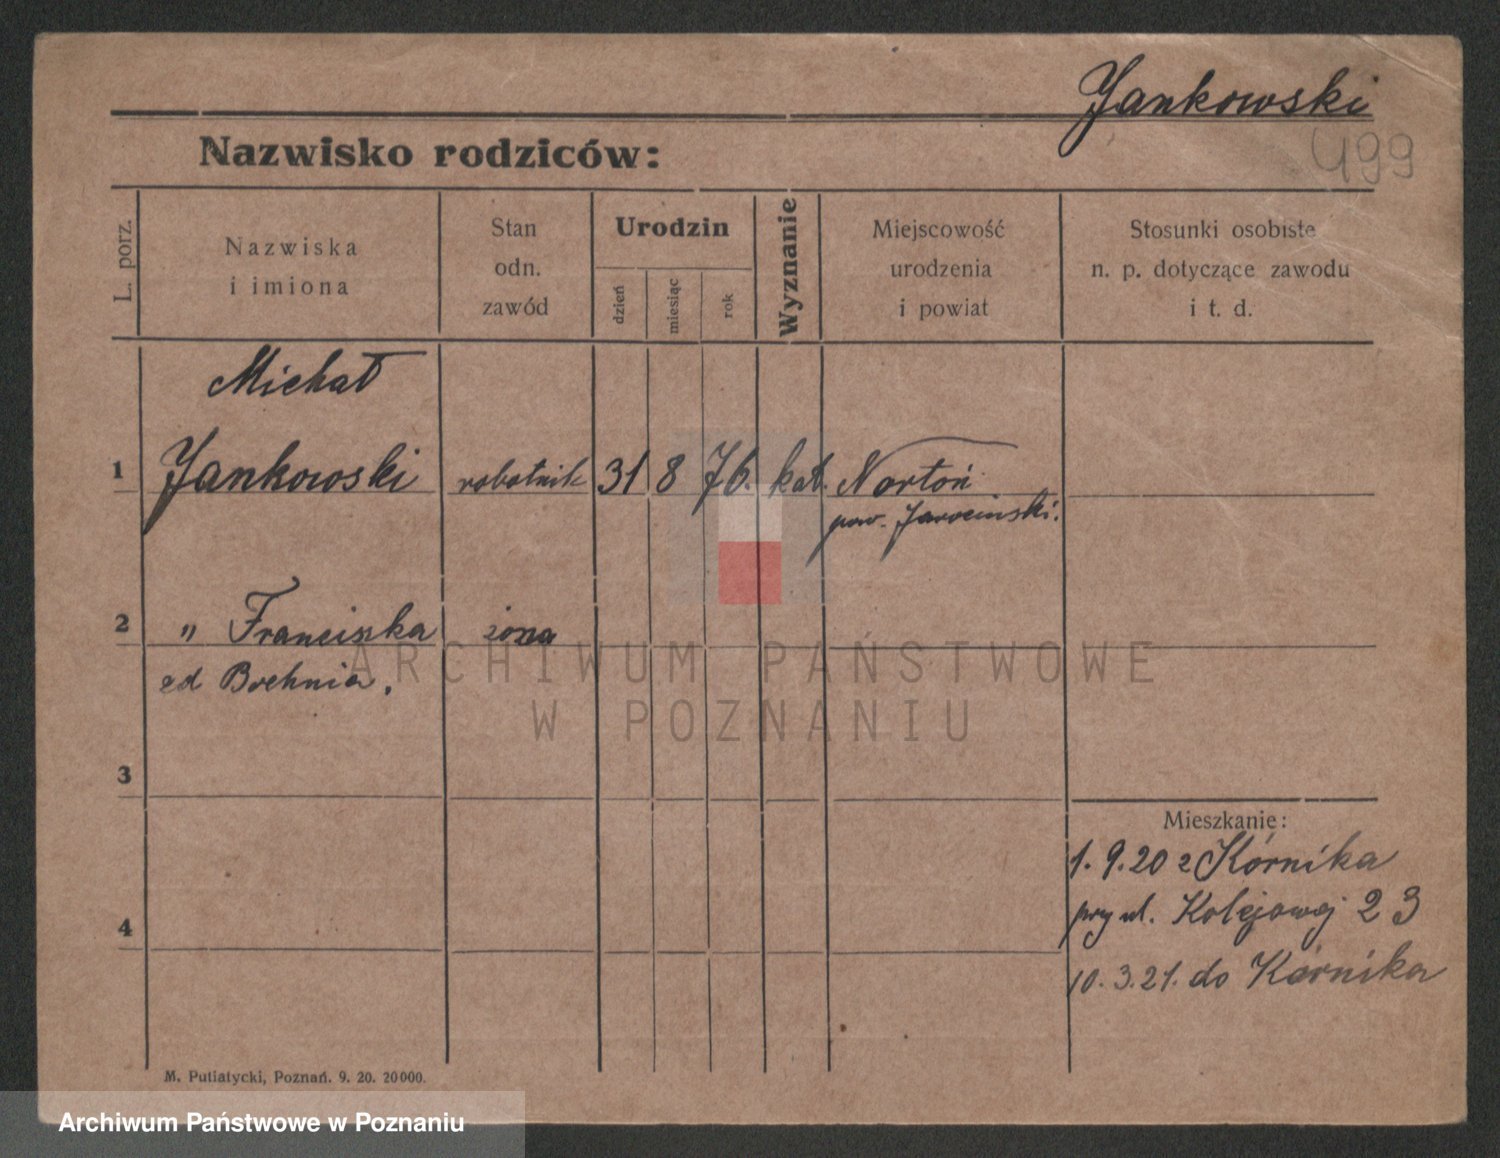 Jankowski
499
Nazwisko rodziców:
L. porz.
Nazwiska
i imiona
Stan
odn.
zawód
Urodzin
dzień
miesiąc
rok
Wyznanie
Miejscowość
urodzenia
i powiat
Stosunki osobiste
n. p. dotyczące zawodu
i t. d.
Michał
1 Jankowski robotnik 31 8 76. kat.
pow. Jarociński.
2 " Franciszka żona
3
Mieszkanie:
1. 9. 20 z Kórnika
przy ul. Kolejowej 23
4
10. 3. 21. do Kórnika
M. Putiatycki, Poznań. 9. 20. 20000.
ARCHIWUM PAŃSTWOWE
W POZNANIU
Archiwum Państwowe w Poznaniu